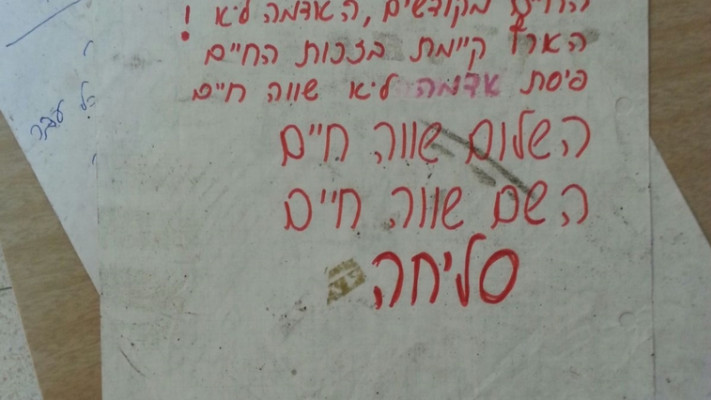 החיים מקודשים, האדמה לא !
הארץ קיימת בזכות החיים
פיסת אדמה לא שווה חיים
השלום שווה חיים
השם שווה חיים
סליחה
עבר